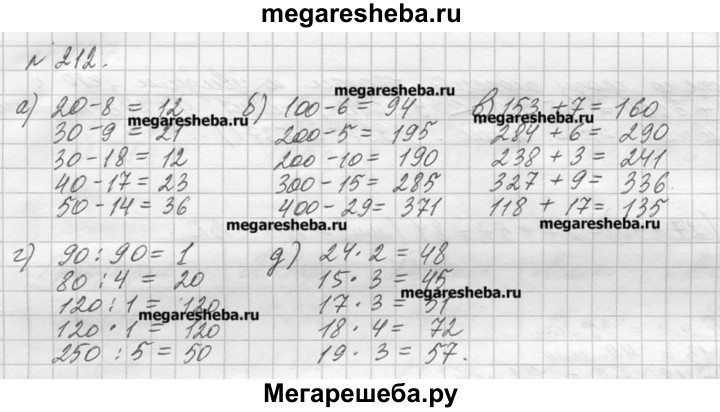 megaresheba.ru
№ 212.
megaresheba.ru
а) 20-8 = 12 б) 100-6 = 94 в) 153 + 7 = 160
megaresheba.ru megaresheba.ru
30-9 = 21 200-5 = 195 284 + 6 = 290
30-18 = 12 200-10 = 190 238 + 3 = 241
40-17 = 23 300-15 = 285 327 + 9 = 336.
50-14 = 36 400-29 = 371 118 + 17 = 135
megaresheba.ru megaresheba.ru
г) 90 : 90 = 1 д) 24 · 2 = 48
80 : 4 = 20 15 · 3 = 45
megaresheba.ru
120 : 1 = 120 17 · 3 = 51
megaresheba.ru
120 · 1 = 120 18 · 4 = 72
250 : 5 = 50 19 · 3 = 57.
Мегарешеба.ру